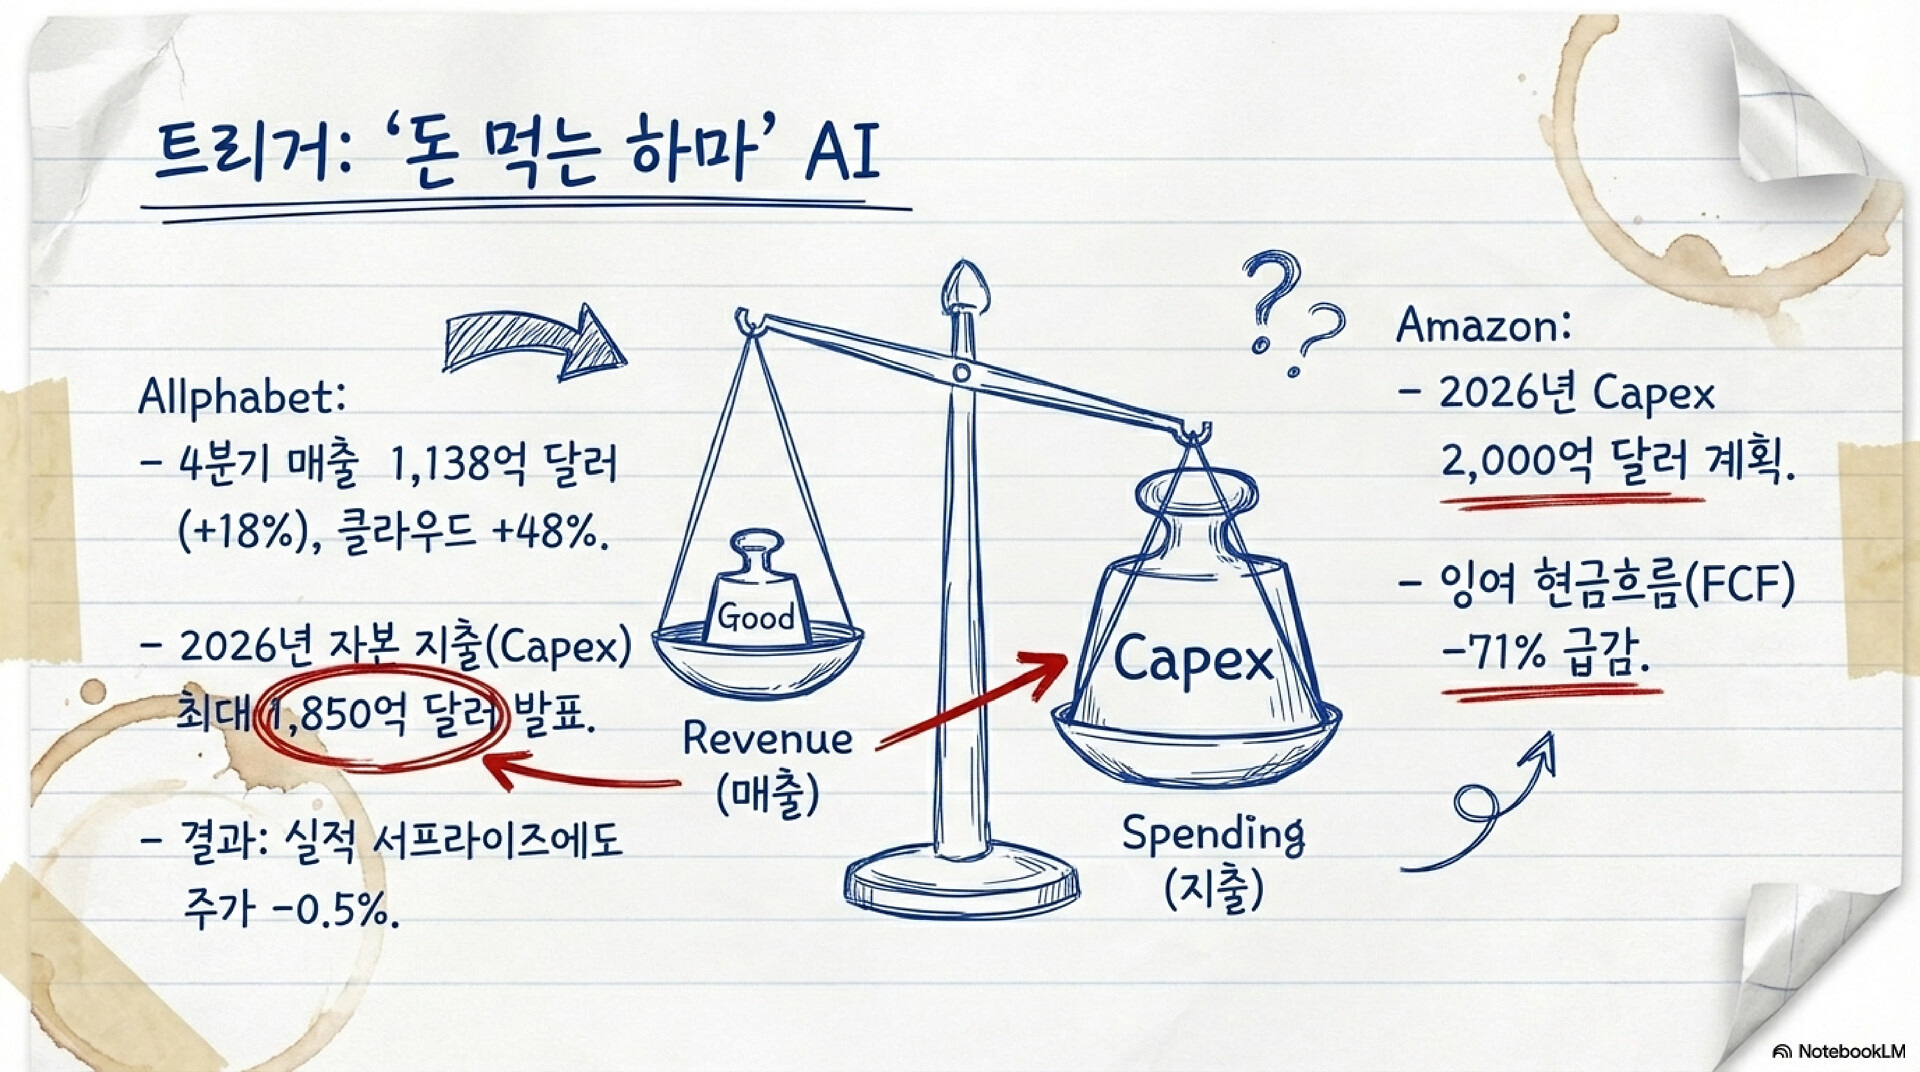 트리거: ‘돈 먹는 하마’ AI
Allphabet:
– 4분기 매출 1,138억 달러
(+18%), 클라우드 +48%.
– 2026년 자본 지출(Capex)
최대 1,850억 달러 발표.
– 결과: 실적 서프라이즈에도
주가 -0.5%.
Good
Revenue
(매출)
? ?
Capex
Spending
(지출)
Amazon:
– 2026년 Capex
2,000억 달러 계획.
– 잉여 현금흐름(FCF)
-71% 급감.
NotebookLM